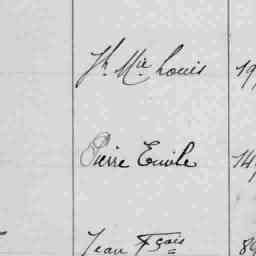 Jh Mie Louis 19
Pierre Emile 14
Jean Fçois 84